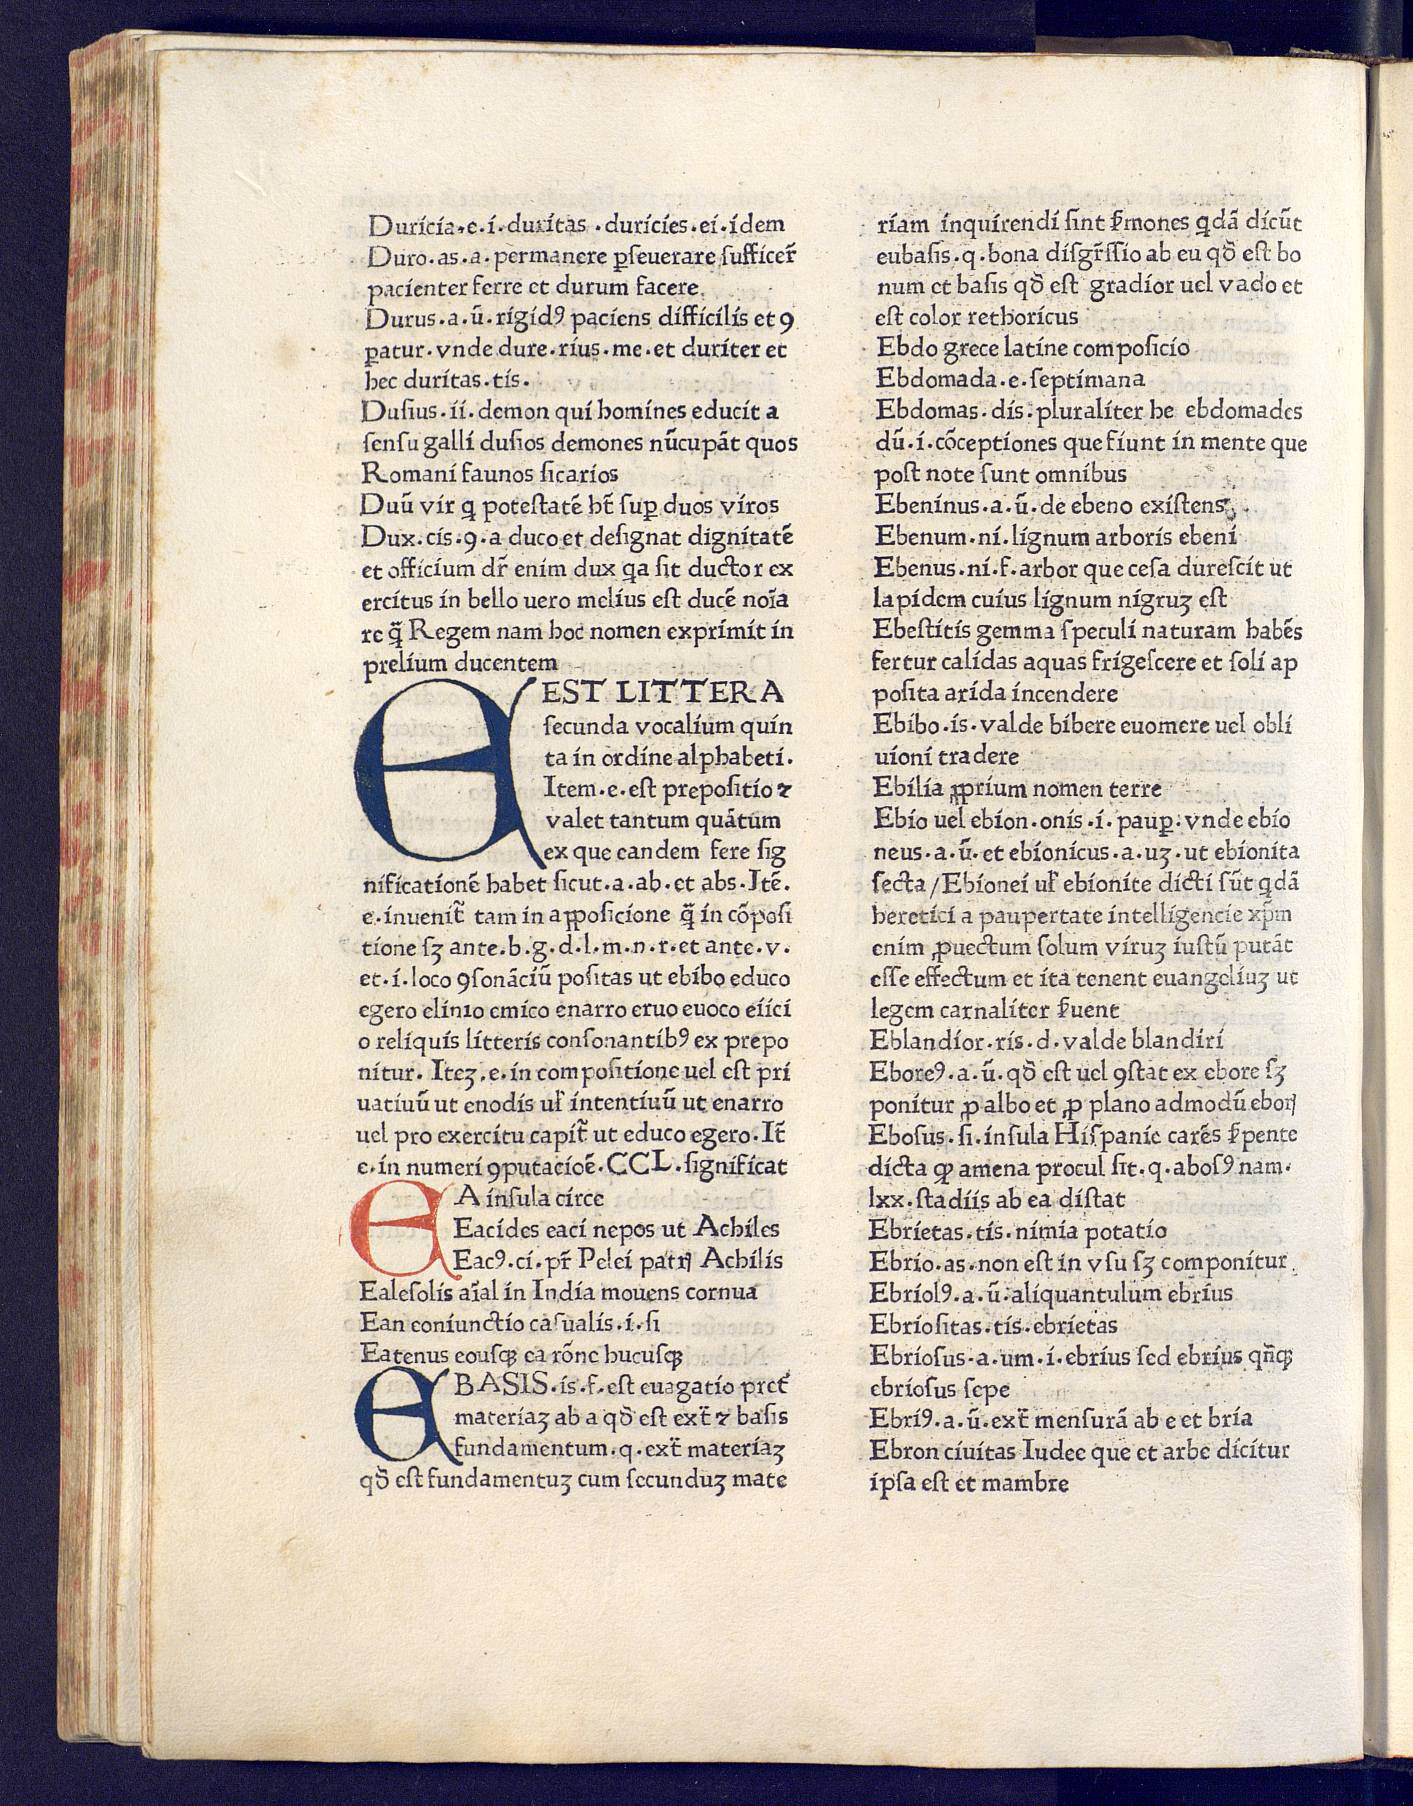 Duricia.e.i.duritas.duricies.ei.idem
Duro.as.a.permanere ꝑſeuerare ſufficer̃
pacienter ferre et durum facere
Durus.a.ũ.rigidꝯ paciens difficilis et ꝯ
ꝑatur.vnde dure.rius.me.et duriter et
hec duritas.tis.
Duſius.ii.demon qui homines educit a
ſenſu galli duſios demones nũcupãt quos
Romani faunos ſicarios
Duũ vir ꝗ poteſtatẽ ht̃ ſuꝑ duos viros
Dux.cis.ꝯ.a duco et deſignat dignitatẽ
et officium dr̃ enim dux ꝗa ſit ductor ex
ercitus in bello uero melius eſt ducẽ noĩa
re ꝗ̃ Regem nam hoc nomen exprimit in
prelium ducentem
E EST LITTERA
ſecunda vocalium quin
ta in ordine alphabeti.
Item.e.eſt prepoſitio ⁊
valet tantum quãtum
ex que eandem fere ſig
nificationẽ habet ſicut.a.ab.et abs.Itẽ.
e.inuenit̃ tam in aꝓpoſicione ꝗ̃ in cõpoſi
tione ſꝫ ante.b.g.d.l.m.n.r.et ante.v.
et.i.loco ꝯſonãciũ poſitas ut ebibo educo
egero elinio emico enarro eruo euoco eiici
o reliquis litteris conſonantibꝯ ex prepo
nitur. Iteꝫ.e.in compoſitione uel eſt pri
uatiuũ ut enodis ul̃ intentiuũ ut enarro
uel pro exercitu capit̃ ut educo egero.It̃
e.in numeri ꝯputacioẽ.CCL.ſignificat
EA inſula circe
Eacides eaci nepos ut Achiles
Eacꝯ.ci.pr̃ Pelei patrꝭ Achilis
Ealeſolis aĩal in India mouens cornua
Ean coniunctio caſualis.i.ſi
Eatenus eouſqꝫ ea rõne hucuſqꝫ
EBASIS.is.f.eſt euagatio pret̃
materiaꝫ ab a qđ eſt ext̃ ⁊ baſis
fundamentum.q.ext̃ materiaꝫ
qđ eſt fundamentuꝫ cum ſecunduꝫ mate
riam inquirendi ſint ẜmones ꝗdã dicũt
eubaſis.q.bona diſgr̃ſſio ab eu qđ eſt bo
num et baſis qđ eſt gradior uel vado et
eſt color rethoricus
Ebdo grece latine compoſicio
Ebdomada.e.ſeptimana
Ebdomas.dis.pluraliter he ebdomades
dũ.i.cõceptiones que fiunt in mente que
poſt note ſunt omnibus
Ebeninus.a.ũ.de ebeno exiſtens.
Ebenum.ni.lignum arboris ebeni
Ebenus.ni.f.arbor que ceſa dureſcit ut
lapidem cuius lignum nigruꝫ eſt
Ebeſtitis gemma ſpeculi naturam habẽs
fertur calidas aquas frigeſcere et ſoli ap
poſita arida incendere
Ebibo.is.valde bibere euomere uel obli
uioni tradere
Ebilia ꝓprium nomen terre
Ebio uel ebion.onis.i.pauꝑ:vnde ebio
neus.a.ũ.et ebionicus.a.uꝫ.ut ebionita
ſecta/Ebionei ul̃ ebionite dicti ſũt ꝗdã
heretici a paupertate intelligencie xp̃m
enim ꝓuectum ſolum viruꝫ iuſtũ putãt
eſſe effectum et ita tenent euangeliuꝫ ut
legem carnaliter ẜuent
Eblandior.ris.d.valde blandiri
Eboreꝯ.a.ũ.qđ eſt uel ꝯſtat ex ebore ſꝫ
ponitur ꝓ albo et ꝓ plano admodũ eborꝭ
Eboſus.ſi.inſula Hiſpanie carẽs ẜpente
dicta ꝙ amena procul ſit.q.aboſꝯ nam.
lxx.ſtadiis ab ea diſtat
Ebrietas.tis.nimia potatio
Ebrio.as.non eſt in vſu ſꝫ componitur.
Ebriolꝯ.a.ũ.aliquantulum ebrius
Ebrioſitas.tis.ebrietas
Ebrioſus.a.um.i.ebrius ſed ebrius qñqꝫ
ebrioſus ſepe
Ebriꝯ.a.ũ.ext̃ menſurã ab e et bria
Ebron ciuitas Iudee que et arbe dicitur
ipſa eſt et mambre